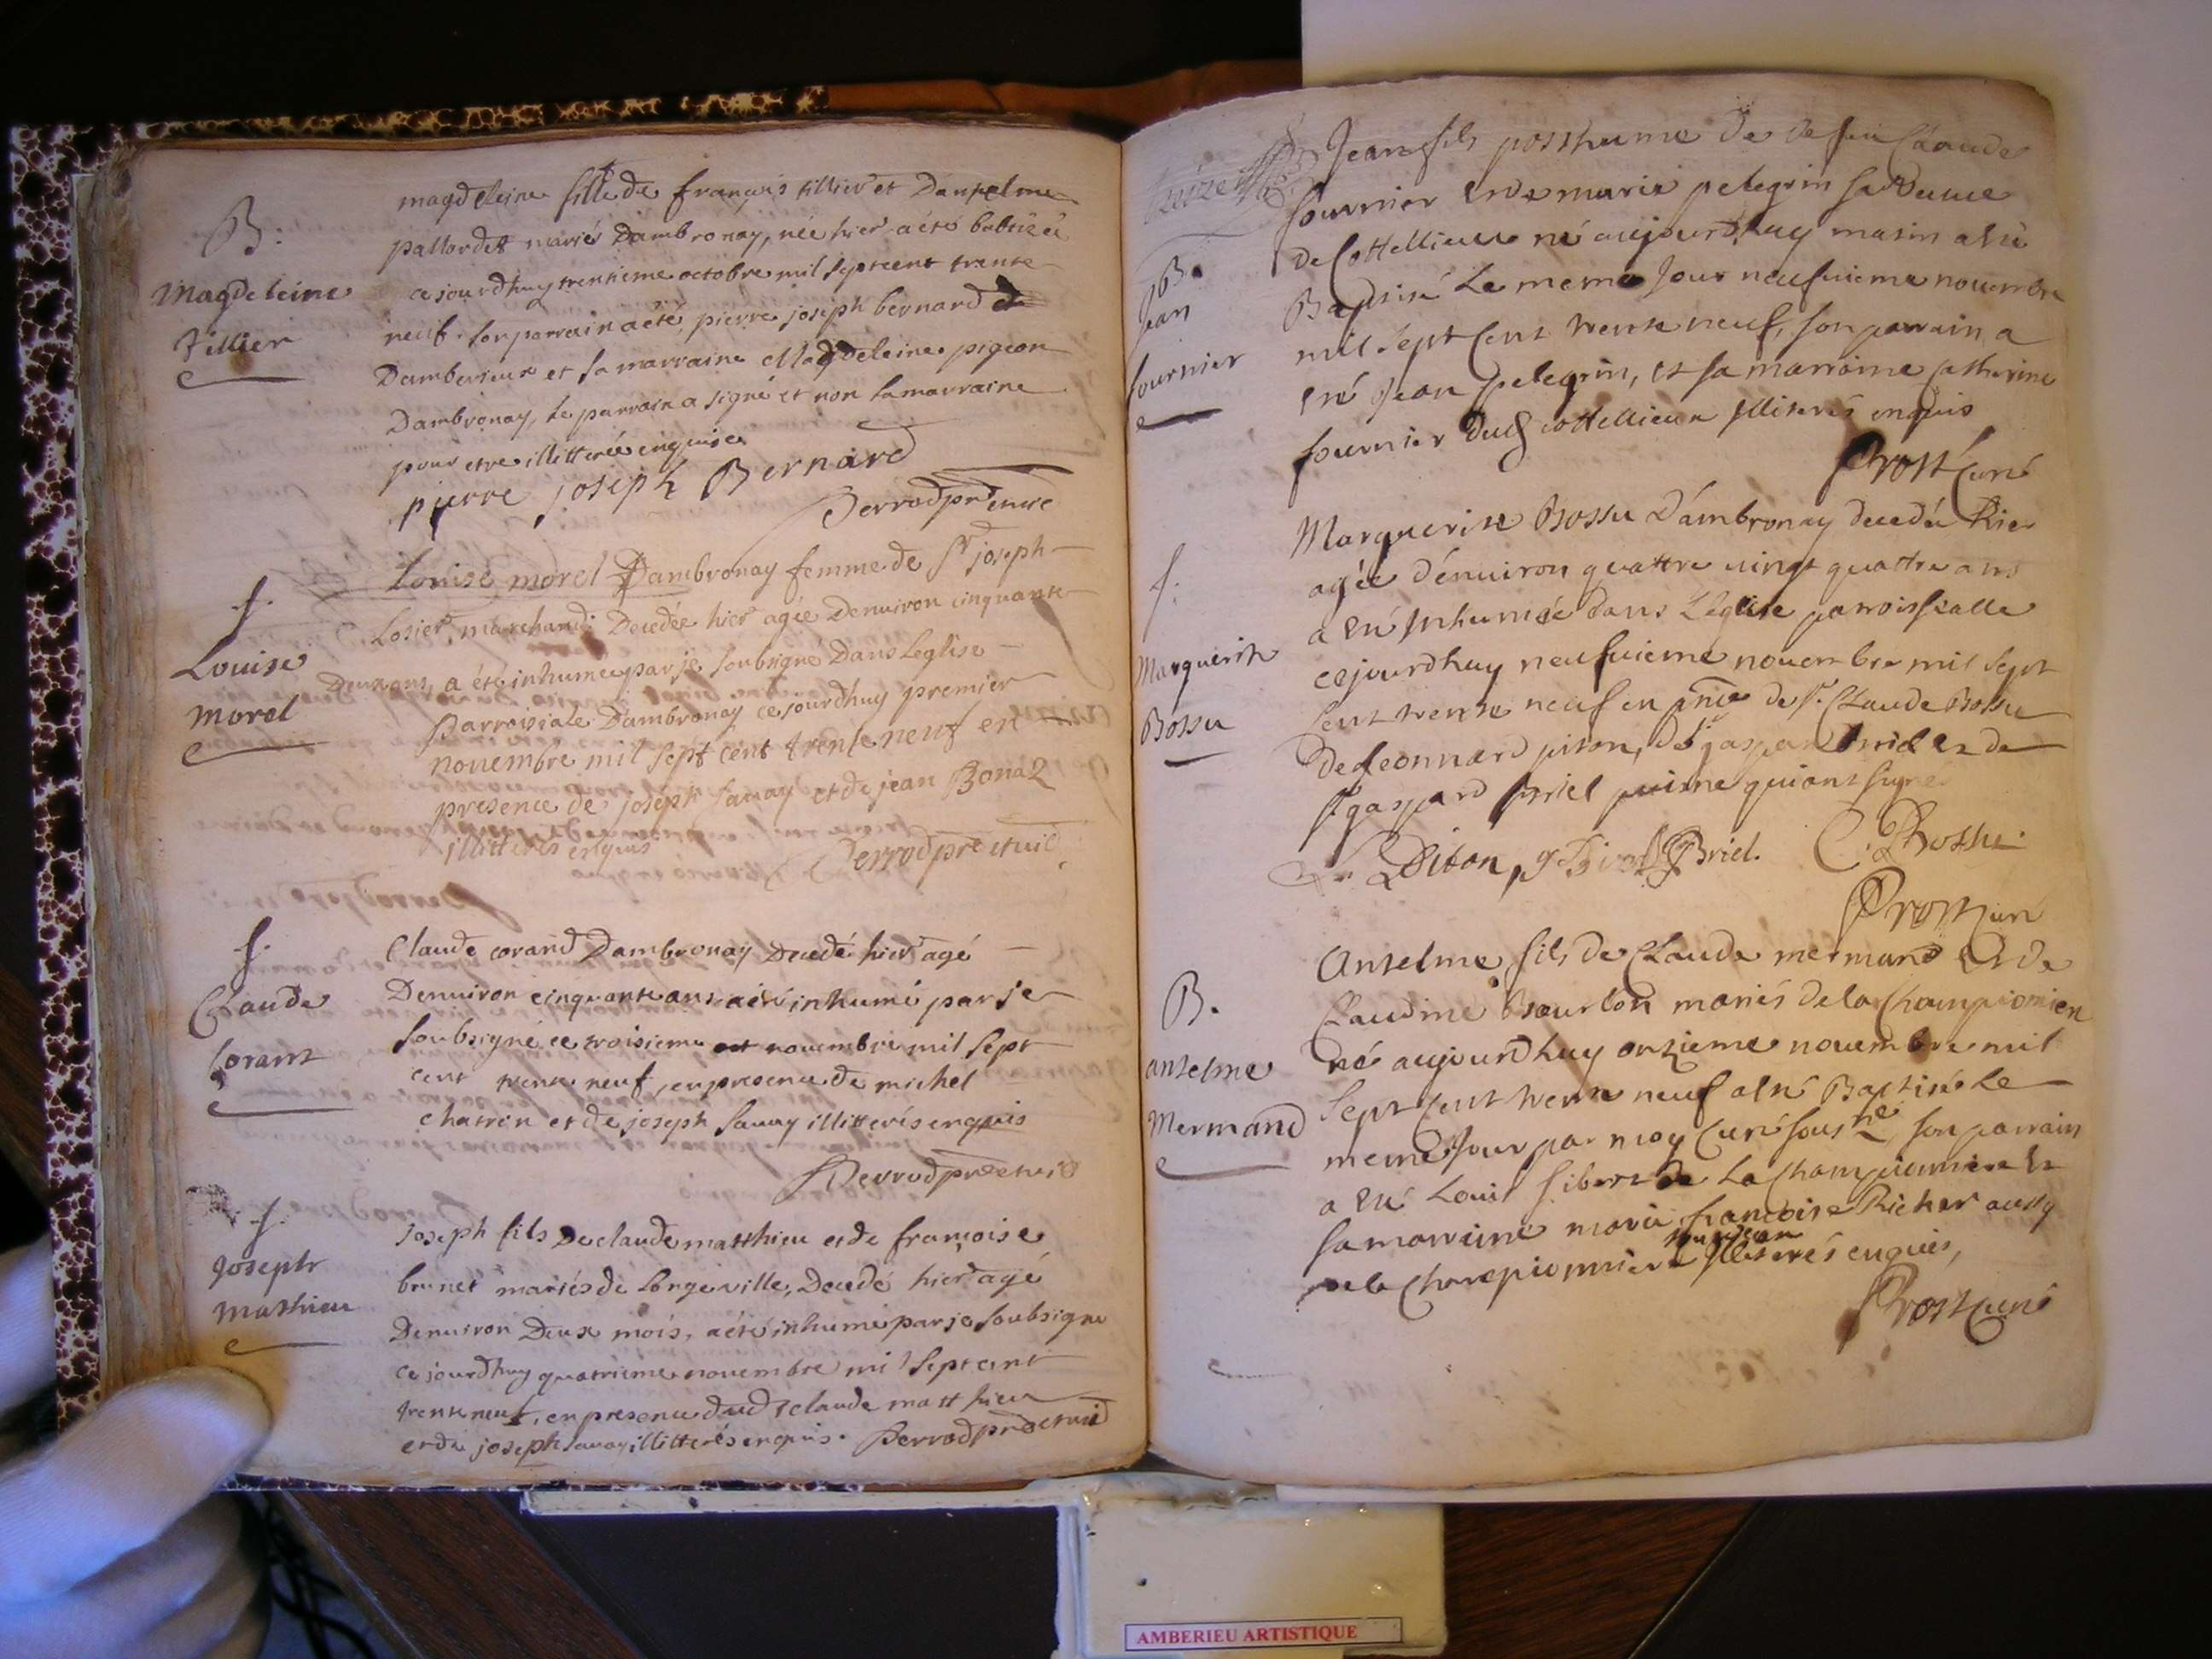 B:
Magdeleine
Tillier
magdeleine fille de françois tillier et Dantelme
pallordet mariés Dambronay, née hier a été babtizée
cejourdhuy trentieme octobre mil septcent trente
neuf. son parrain a été pierre joseph bernard
Damberieux et sa marraine Magdeleine pigeon
Dambronay, le parrain a signé et non la marraine
pour etre illitterée enquise
pierre joseph Bernard
Perrod pre et vic
f.
Louise
morel
Louise morel Dambronay femme de Sr joseph
Losier, marchand, Decedée hier agée Denuiron cinquante
Deux ans, a été inhumée par je soubsigné Dans Leglise
parroisiale Dambronay ce jourdhuy premier
nouembre mil sept cent trente neuf en
presence de joseph sauay et de jean Bonaz
illitterés enquis
Perrod pre et vic
f.
Claude
Corant
Claude corand Dambronay Decedé hier agé
Denuiron cinquante ans a été inhumé par je
soubsigné ce troisieme nouembre mil sept
cent trente neuf, en presence de michel
chatron et de joseph sauay illitterés enquis
Perrod pre et vic
f.
Joseph
Mathieu
Joseph fils De claude matthieu et de françoise
brunet mariés de Longeville, Decedé hier agé
Denuiron Deux mois, a été inhumé par je soubsigné
ce jourdhuy quatrieme nouembre mil septcent
trente neuf, en presence dud claude matthieu
et de joseph sauay illitterés enquis. Perrod pre et vic
B.
Jean
fournier
Jean fils posthume de defeu Claude
fournier et de marie pelegrin sa veuue
de Cottellieux né aujourdhuy matin a été
Baptisé le meme jour neufuieme nouembre
mil sept cent trente neuf, son parrain a
été Jean pelegrin, et sa marraine catherine
fournier dud cottellieux illiterés enquis
Prost Curé
f.
Marguerite
Bossu
Marguerite Bossu D'ambronay decedée hier
agée d'enuiron quattre uingt quattre ans
a été inhumée dans L'eglise parroissialle
cejourdhuy neufuieme nouembre mil sept
cent trente neuf en pnce de sr. Claude Bossu
de leonnard piton, de sr gaspard briel et de
sr gaspard briel puisne qui ont signé
L. Piton, Briel. C. Bossu
Prost Curé
B.
antelme
Mermand
Antelme fils de Claude mermand et de
Claudine Bourbon mariés de la Championiere
né aujourdhuy onzieme nouembre mil
sept cent trente neuf a été Baptisé le
meme jour par moy Curé sousné, son parrain
a été Louis sibert de la Championniere et
sa marraine marie francoise Richer aussy
de la Championniere illiterés enquis,
Prost Curé
AMBERIEU ARTISTIQUE